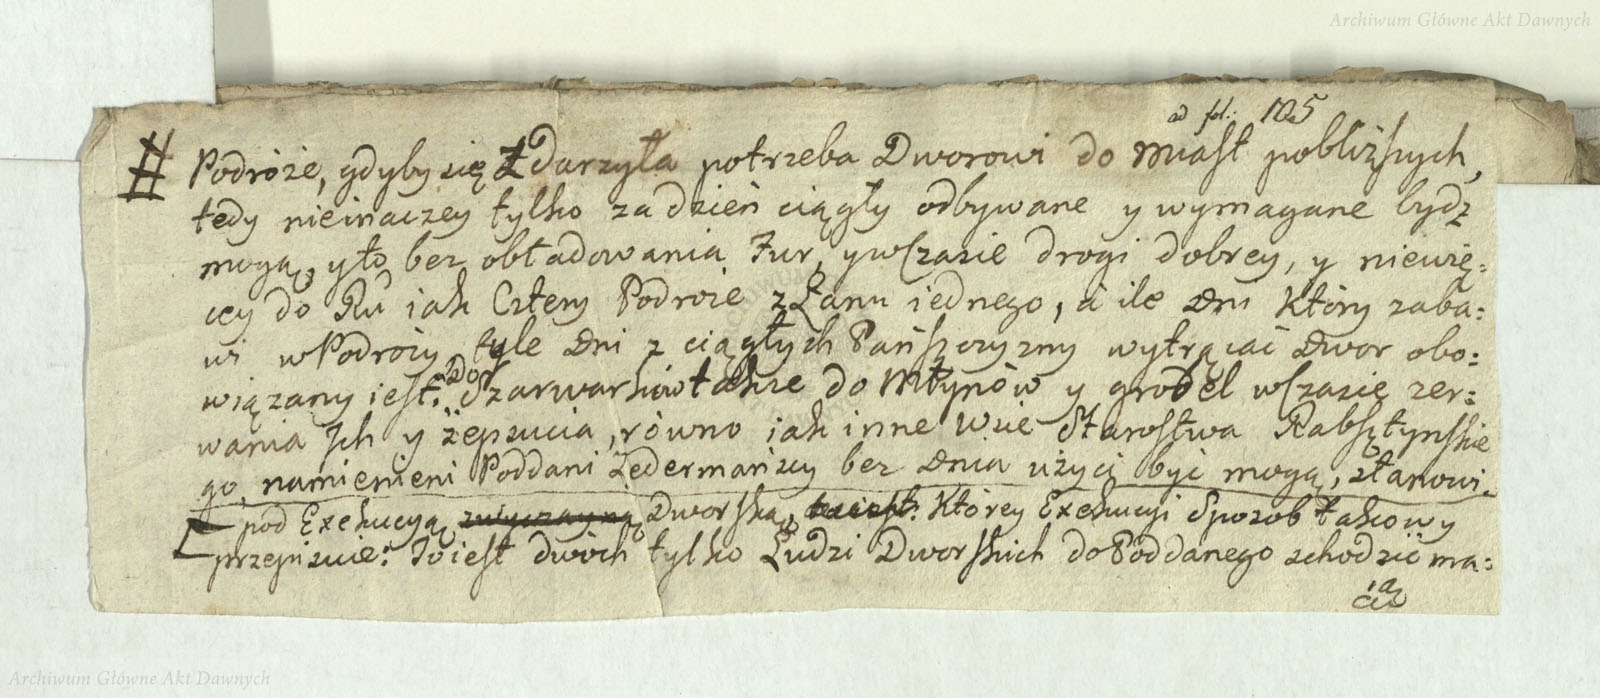 Archiwum Główne Akt Dawnych
ad fol: 105
# Podróże, gdyby się Zdarzyła potrzeba Dworowi do miast pobliższych,
tedy nieinaczey tylko za dzień ciągły odbywane y wymagane bydź
mogą, y to bez obładowania Fur, y wczasie drogi dobrey, y niewię:
cey do Ru iak Cztery Podróże z Łanu iednego, a ile Dni Który zaba:
wi wPodróży tyle Dni z ciągłych Pańszczyzny wytrącać Dwor obo:
wiązany iest. Do Szarwarków także do Młynów y grobel wczasie zer:
wania Jch y zepsucia, równo iak inne Wsie Starostwa Rabsztynskie
go, namienieni Poddani Ledermańscy bez Dnia użyci być mogą, stanowi.
pod Exekucyą zwyczayną Dworską, to iest: Którey Exekucyi Sposob takowy
przepisuie: Toiest dwóch tylko Ludzi Dworskich doPoddanego schodzić ma:
ią
Archiwum Główne Akt Dawnych